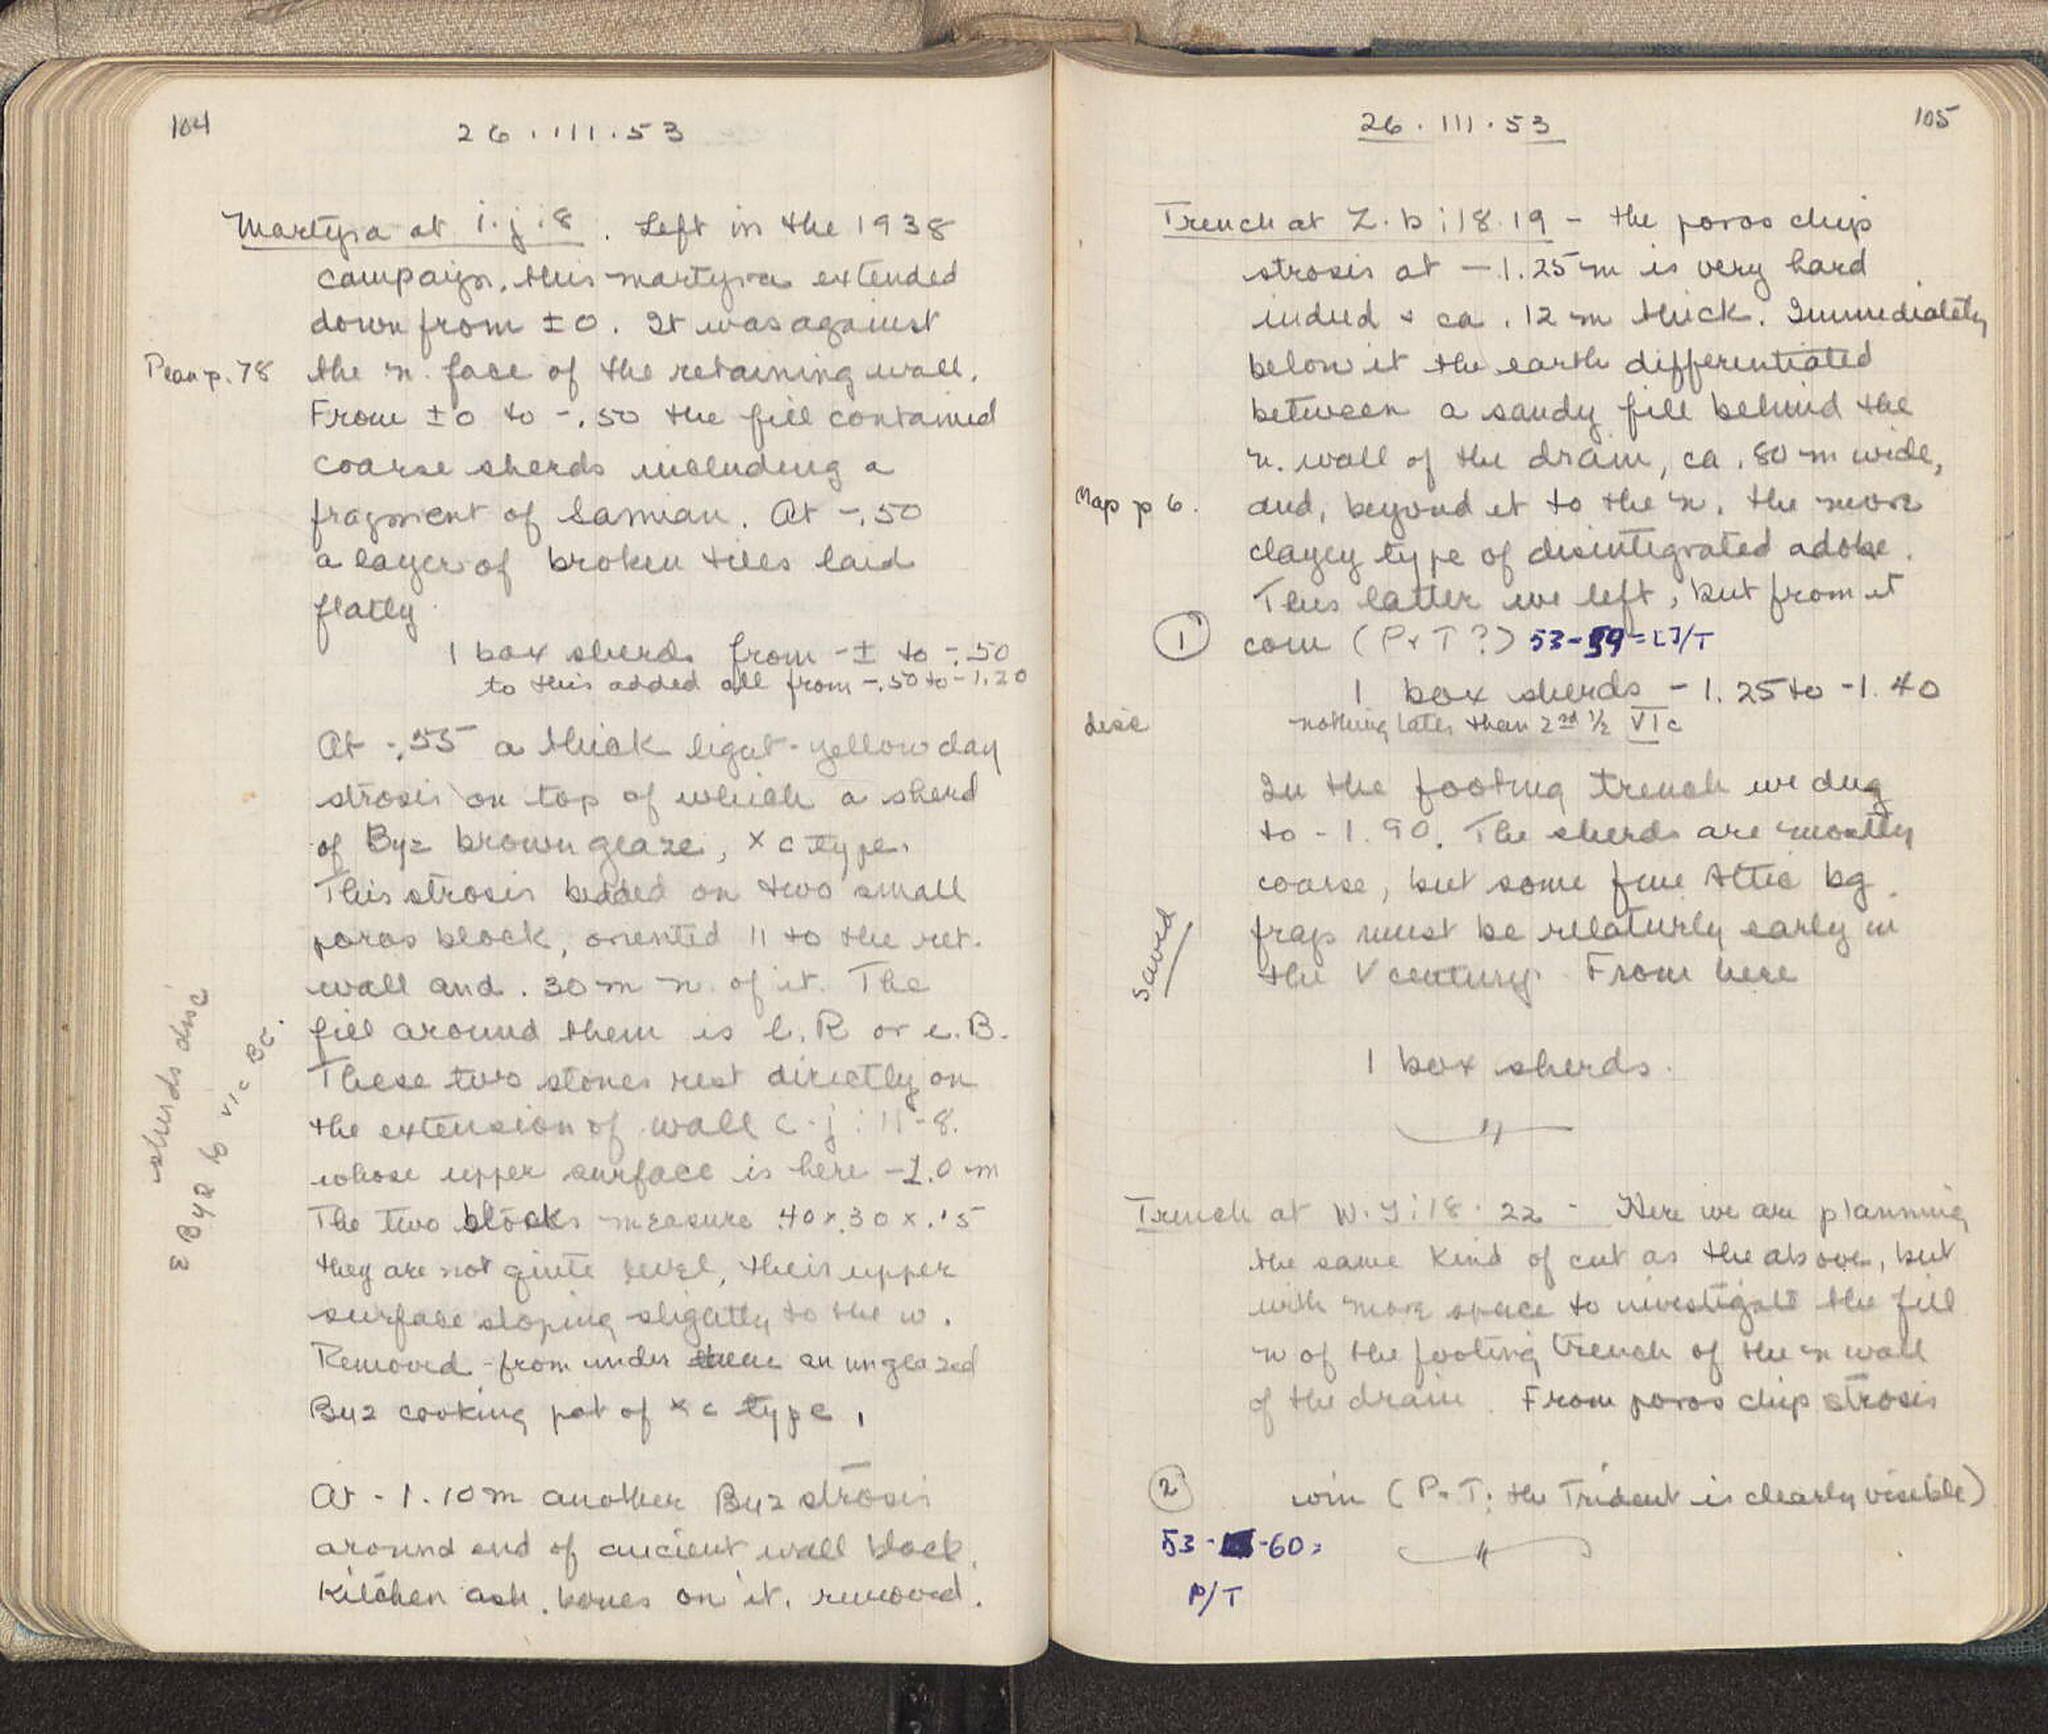 104
26.III.53
Martyra at i.j:8. Left in the 1938
campaign, this martyra extended
down from ±0. It was against
Plan p. 78
the n. face of the retaining wall.
From ±0 to -.50 the fill contained
coarse sherds including a
fragment of Samian. At -.50
a layer of broken tiles laid
flatly.
1 box sherds from -± to -.50
to this added all from -.50 to -1.20
At -.55 a thick light-yellow clay
strosis on top of which a sherd
of Byz brown glaze, X c type.
This strosis bedded on two small
poros block, oriented 11 to the ret.
wall and .30 m n. of it. The
fill around them is l.R or e.B.
These two stones rest directly on
the extension of wall c-j:11-8.
whose upper surface is here -1.0 m
The two blocks measure .40x.30x.15
they are not quite level, their upper
surface sloping slightly to the w.
Removed from under an unglazed
Byz cooking pot of X c type.
At -1.10 m another Byz strosis
around end of ancient wall block.
Kitchen ash, bones on it, removed.
sherds disc
E Byz to VI c BC.
26.III.53
105
Trench at Z.b:18.19 - the poros chip
strosis at -1.25 m is very hard
indeed + ca .12 m thick. Immediately
below it the earth differentiated
between a sandy fill behind the
n. wall of the drain, ca .80 m wide,
Map p 6.
and, beyond it to the n. the more
clayey type of disintegrated adobe.
This latter we left, but from it
1 coin (P+T?) 53-59=[]/T
1 box sherds -1.25 to -1.40
disc
nothing later than 2nd ½ VI c
In the footing trench we dug
to -1.90. The sherds are mostly
coarse, but some fine Attic bg.
saved
frags must be relatively early in
the V century. From here
1 box sherds.
Trench at W.Y:18.22 - Here we are planning
the same kind of cut as the above, but
with more space to investigate the fill
n of the footing trench of the n wall
of the drain. From poros chip strosis
2 coin (P+T: the Trident is clearly visible)
53-60=
P/T